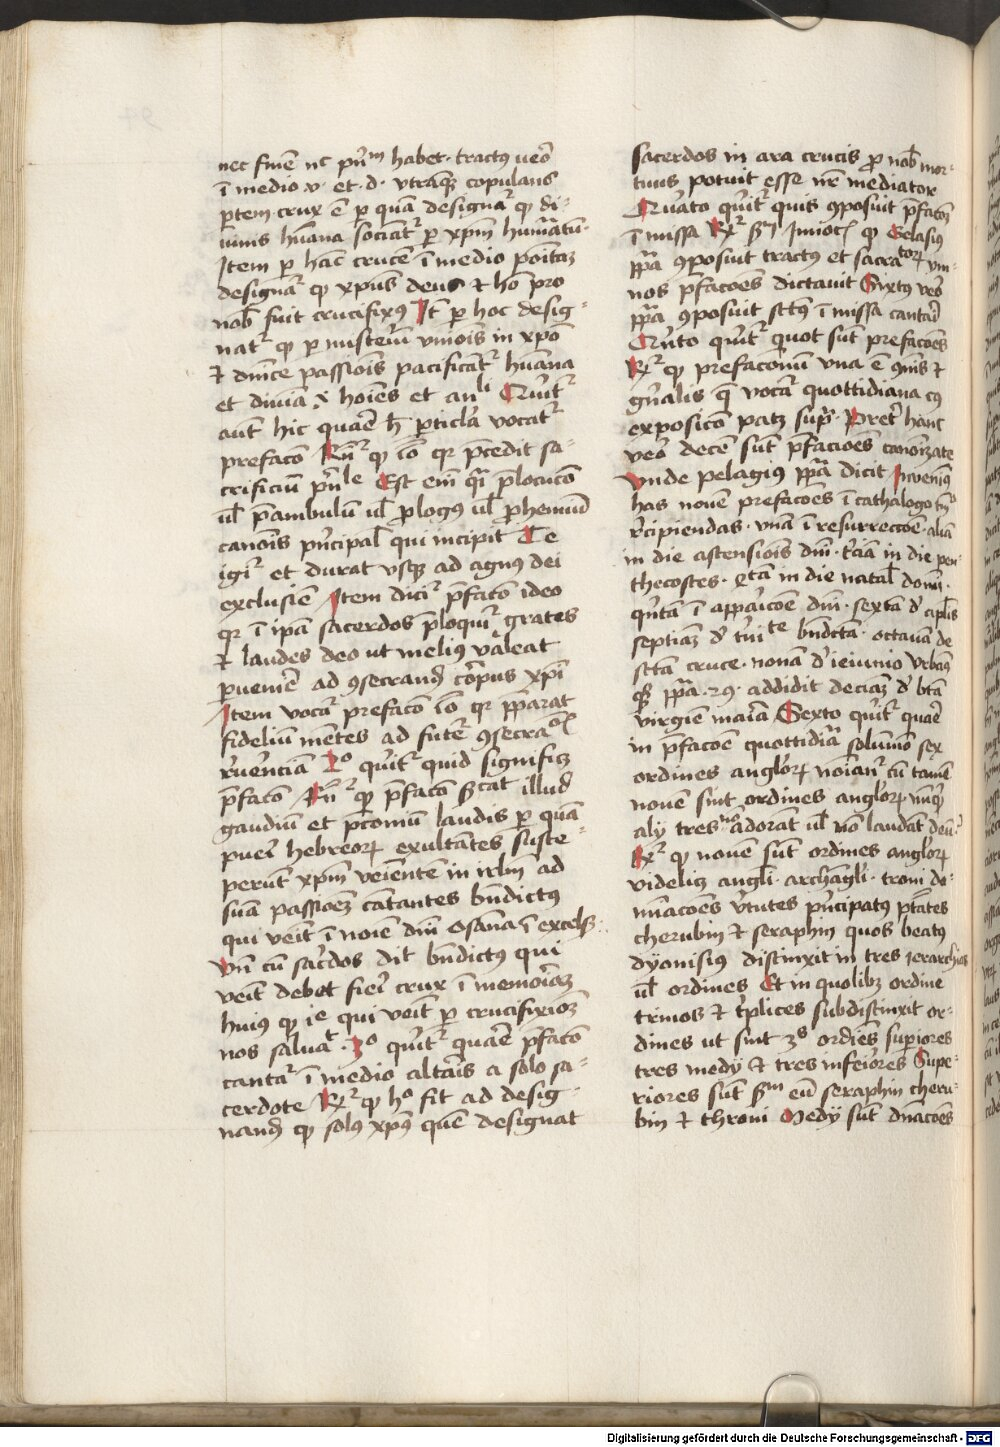 nec finē nc pn̄m habet · tractus ueō
ī medio v · et · d · vtrāqꝫ copulans
ꝑtem crux ē ꝑ quā designaͬ ꝙ di-
uinis hūana sociātͬ ꝑ xpm̄
Item ꝑ hāc crucē ī medio
designaͬ ꝙ xpūs deus ⁊ hō pro
nob̄ fuit crucifixꝰ Itē ꝑ hoc desig-
natͬ ꝙ ꝑ misteriū vniois in xpō
⁊ dnīce passiōis pacificātͬ hūana
et diuīa hoīes et an̄li Qrit̄ͬ
aūt hic quaē h̄ ꝑticl̄a vocatͬ
prefacō Rn̄ͬ ꝙ iō qr p̄cedit sa-
crificiū pn̄le Est em̄ q̄i p̄locucō
ul̓ p̄ambulū ul̓ ꝓlogꝰ ul̓ ꝓhemiū
canōis pn̓cipal̓ qui incipit Te
igiͬ et durat vsqꝫ ad agnus dei
exclusiē Item diciͬ p̄facō ideo
qr ī ip̄a sacerdos p̄loquiͬ grates
⁊ laudes deo ut meliꝰ valeat
ꝑueniē ad ꝯsecrand̓ corpus xp̄i
Item vocaͬ prefacō iō qr p̄ꝑarat
fideliū mētes ad futē ꝯsecrac̄ois
reuerēciā 2o qrit̄ͬ quid significꝫ
p̄facō Rn̄ͬ ꝙ p̄facō s̄cat illud̓
gaudiū et p̄coniū laudis ꝑ quā
pueri hebreoꝝ exultātes susce-
perūt xpm̄ veīentē in irlm̄ ad
suā passioēꝫ cātantes bn̄dictus
qui veīt ī noīe dn̄i Osāna ī excels̓
Vn̄ cū sac̄dos dīt bn̄dictus qui
veīt debet fieri crux ī memoriaꝫ
huiꝰ ꝙ ie qui veīt ꝑ crucifixioꝫ
nos saluat · 3o qrit̄ͬ quaē p̄facō
cantaͬ ī medio altāis a solo sa-
cerdote Rͬ ꝙ ho fit ad desig-
nand̓ ꝙ solꝰ xpūs quē designat
sacerdos in ara crucis ꝓ nob̄ mor-
tuus potuit esse nr̄e mediator
Qruato qrit̄ͬ quis ꝯposuit p̄facōꝫ
ī missa Rͬ sm̄ Innoc̄ ꝙ Gelasiꝰ
pp̄a ꝯposuit tractus et sacratorꝝ vn-
nos p̄facōes dictauit Sixtꝰ veō
pp̄a ꝯposuit sctūs ī missa cantari
Qrīto qrit̄ͬ quot sūt prefacōes
Rͬ ꝙ prefaconū vna ē ꝯīs ⁊
gn̄alis q̄ vocaͬ quottidiana cꝰ
exposicō patꝫ supͣ · Preter hanc
veō decē sūt p̄facioēs canonizate
Vnde pelagius pp̄a dicit Inueniꝰ
has nouē prefacōes ī cathalogo
recipiendas · vnā ī resurrecoe · aliā
in die ascensiōis dn̄i · t̓ciā in die pen-
thecostes · qr̄tā in die natal̓
qn̄tā ī apparicōe dn̄i · sextā de apl̄is
septiaꝫ de tn̄itate bn̄dicta · octauā de
sctā cruce · nonā de ieiunio vrbanꝰ
qꝫ pp̄a ·29· addidit deciaꝫ de btā
virgiē maria Sexto qrit̄ͬ quaē
in p̄facoē quottidiāa solūmō sex
ordines angloꝝ noīanͬ cū tamē
nouē sint ordines angloꝝ
alij tres nō adorāt ul̓ nō laudāt deū
Rͬ ꝙ nouē sūt ordines angloꝝ
videlicꝫ angl̓i · archāgl̓i · troni do-
mīacōes v̓tutes pn̓cipatꝰ ptātes
cherubin ⁊ seraphin quos beatꝰ
dyonisius distinxit in tres ierarchias
ul̓ ordines Et in quolibꝫ ordine
trinos ⁊ t̓plices subdistinxit or-
dines ut sint 3s ordīes superiores
tres medij ⁊ tres inferiores Supe-
riores sūt sm̄ eū seraphin cheru-
bin ⁊ throni Medij sūt dn̄acōes
Digitalisierung gefördert durch die Deutsche Forschungsgemeinschaft - DFG